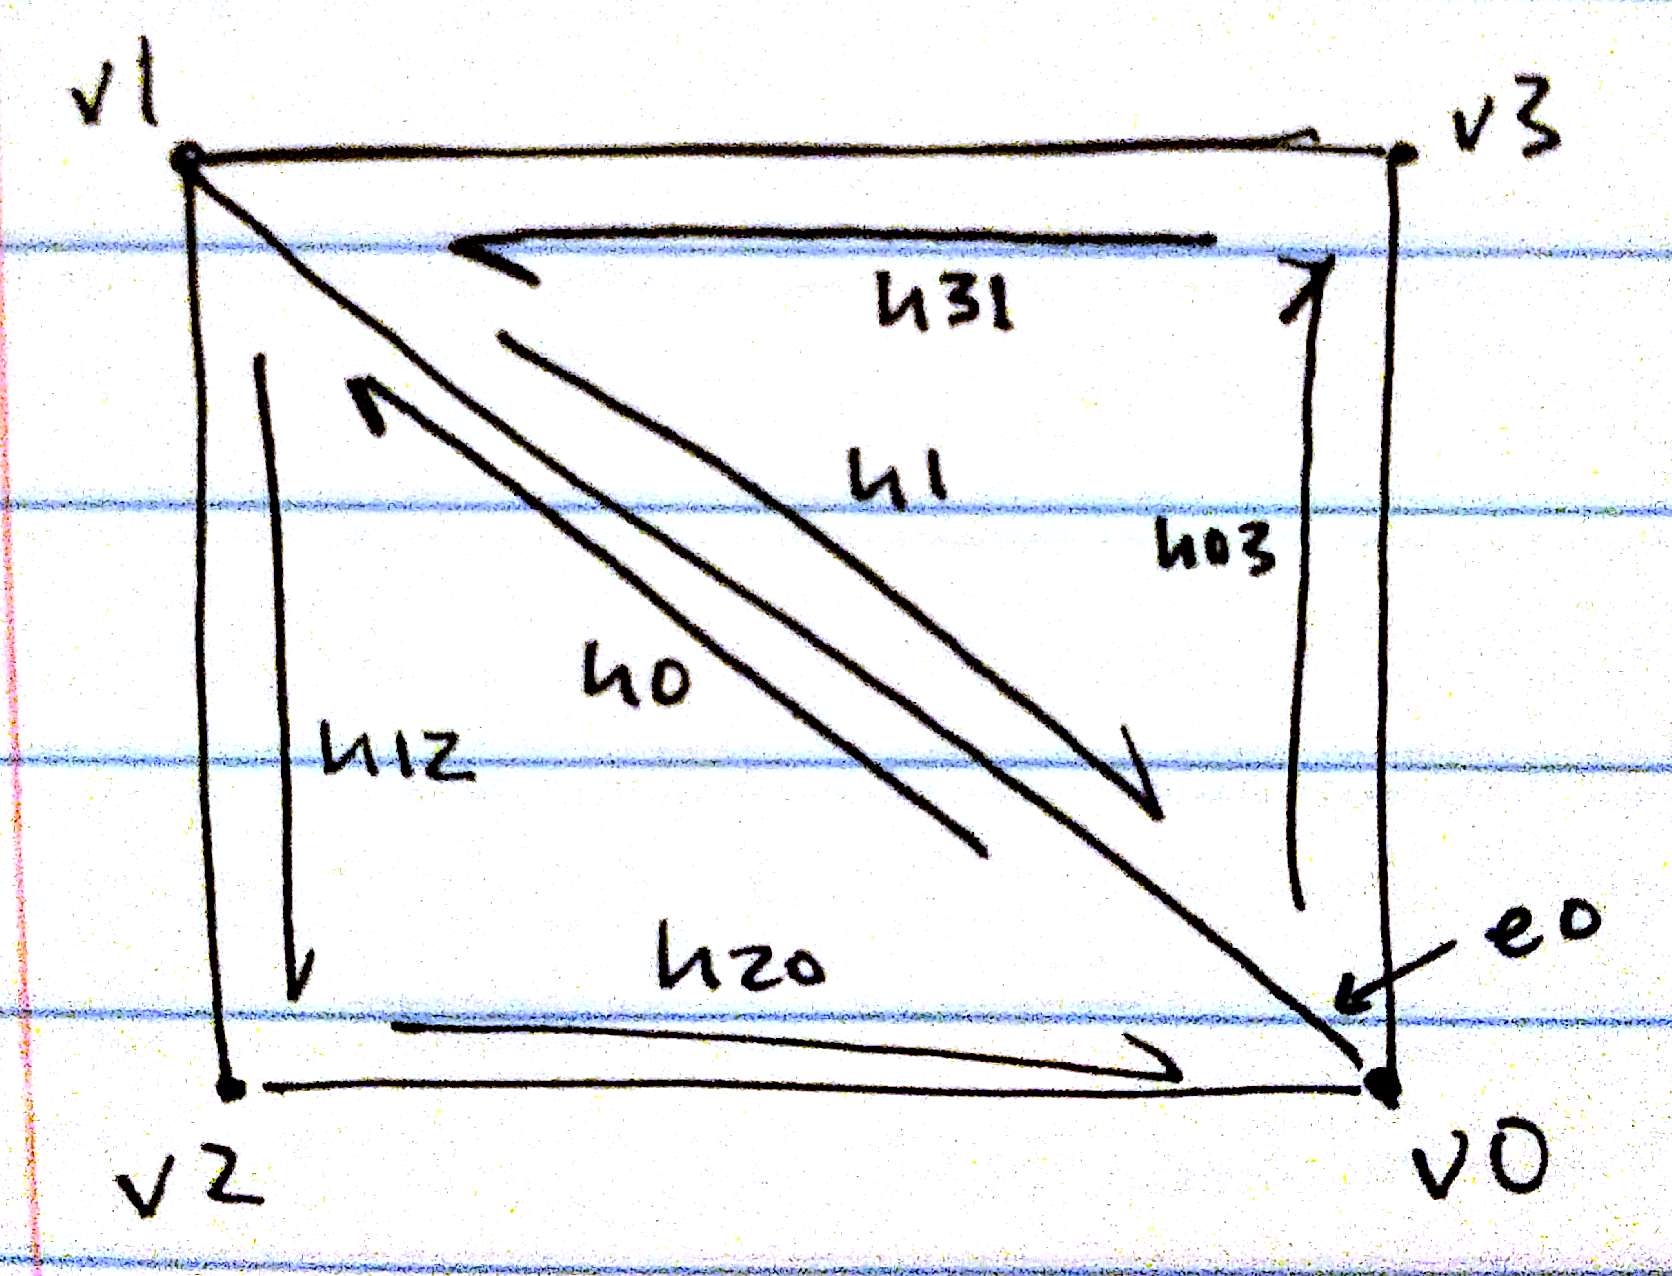 v1
v3
h31
h1
h03
h0
h12
e0
h20
v2
v0